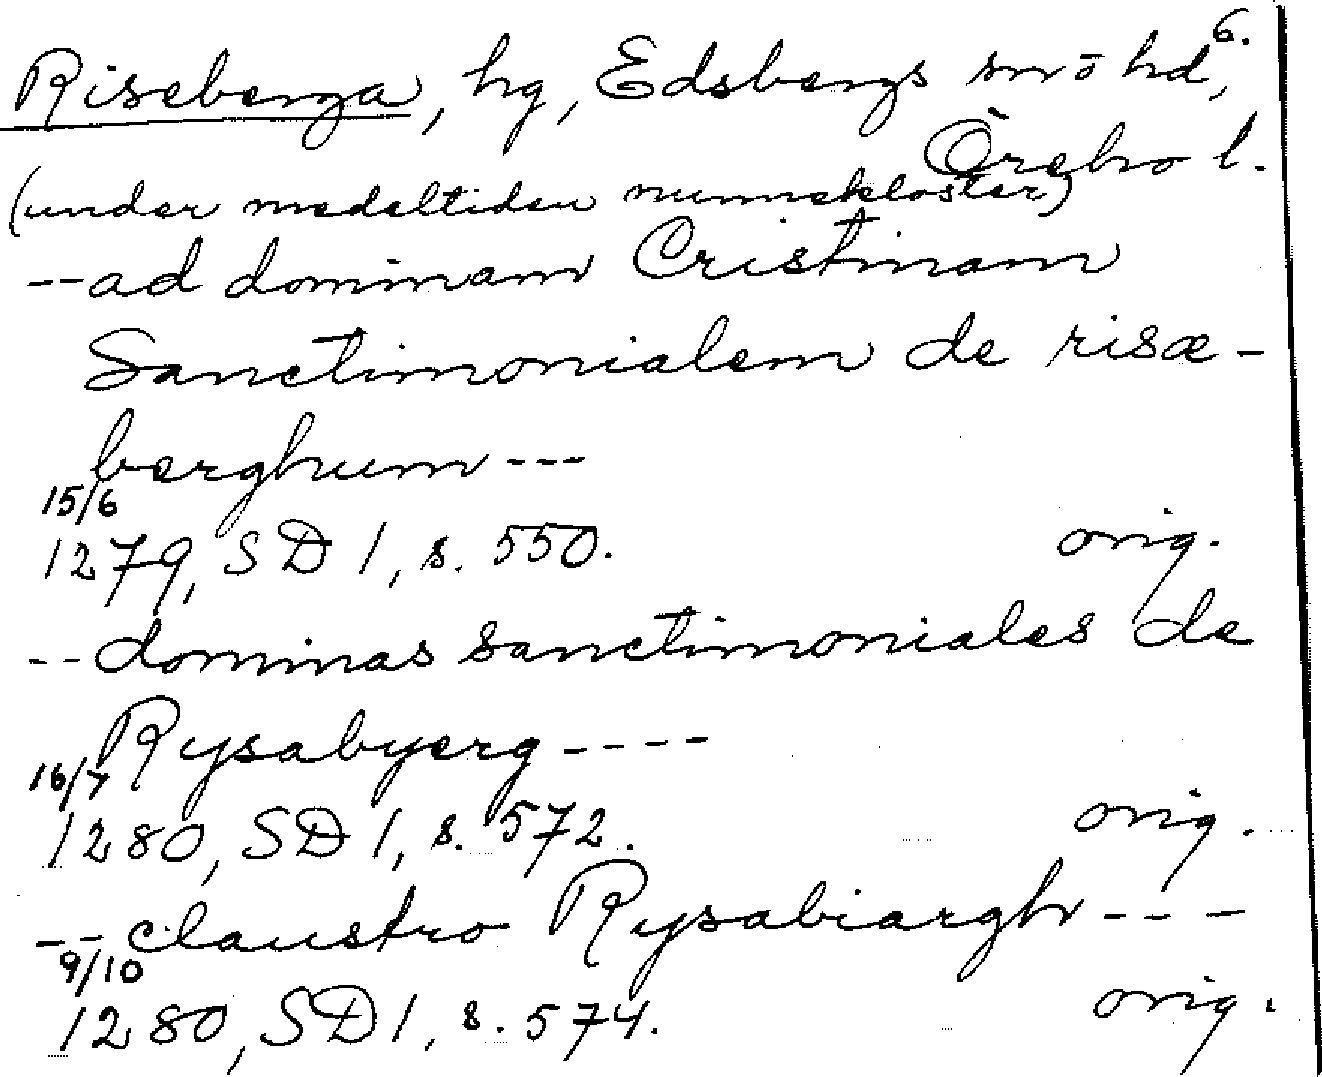 6.
Riseberga, hg, Edsbergs sn o hd,
Örebro l.
(under medeltiden nunnekloster)
-- ad dominam Cristinam
Sanctimonialem de risæ-
berghum ---
15/6
1279, SD 1, s. 550. orig.
-- dominas sanctimoniales de
Rysabyerg ----
16/7
1280, SD 1, s. 572. orig.
-- claustro Rysabiargh ---
9/10
1280, SD 1, s. 574. orig.